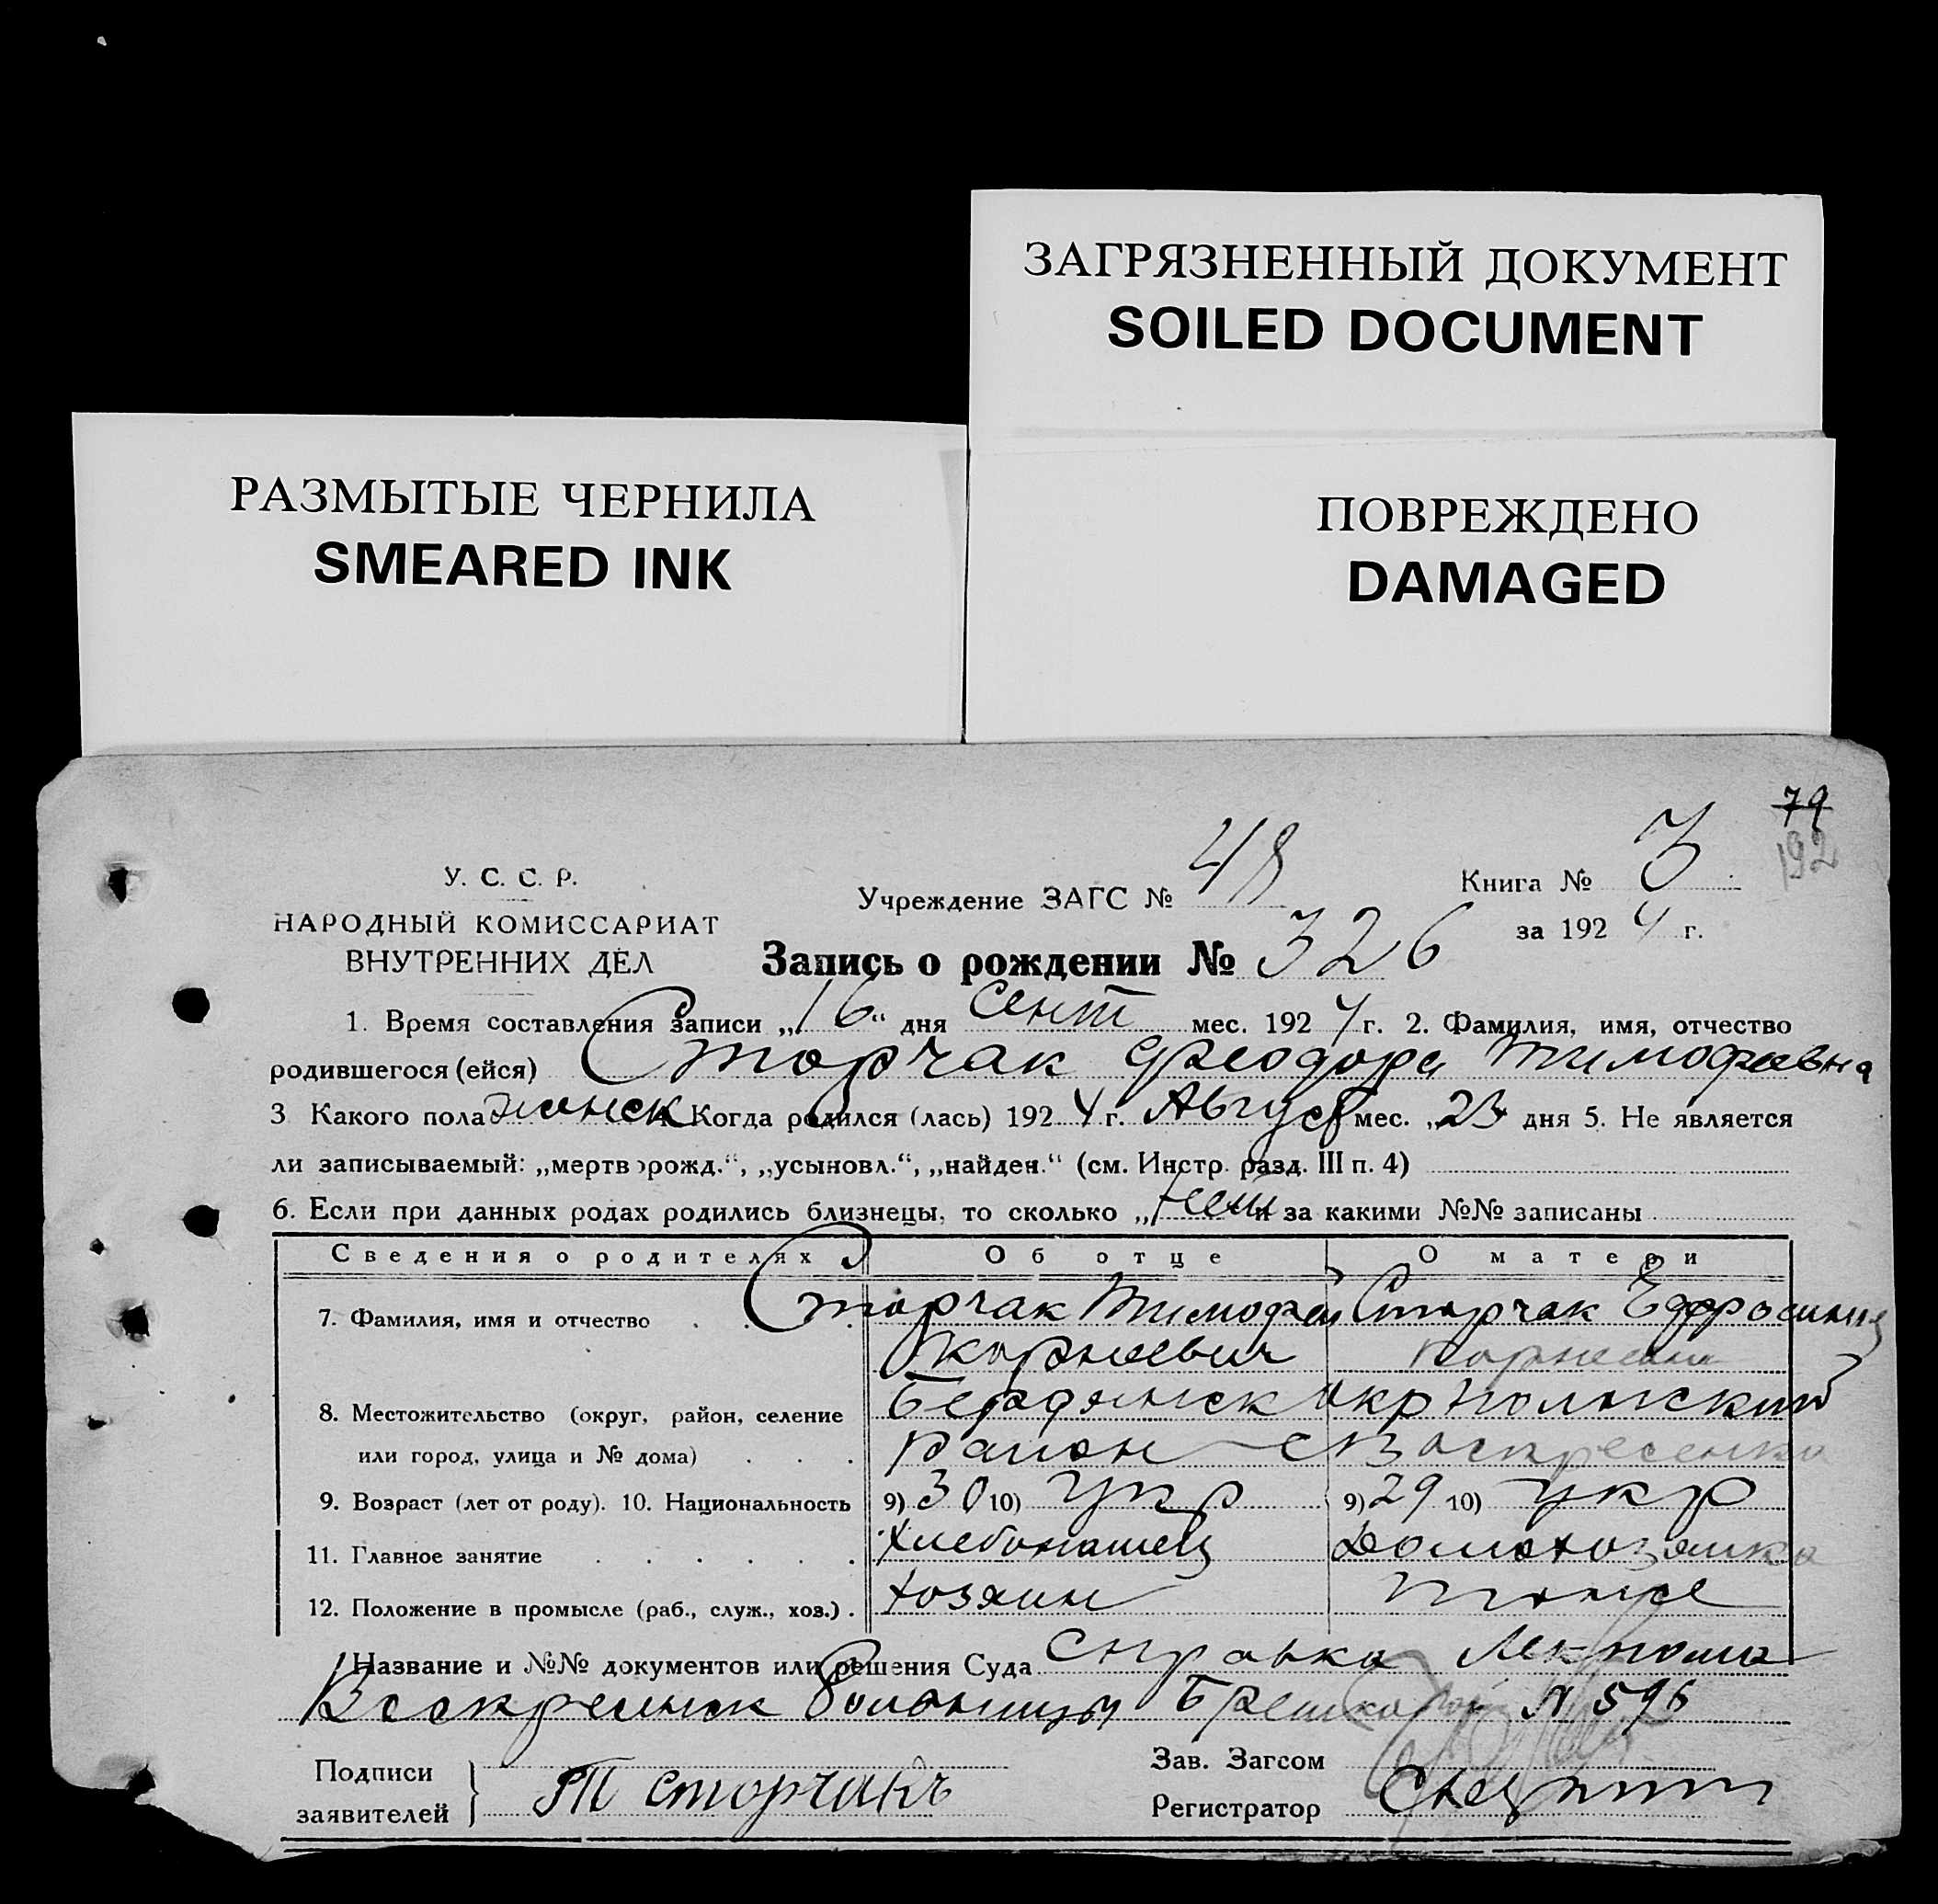 ЗАГРЯЗНЕННЫЙ ДОКУМЕНТ
SOILED DOCUMENT
РАЗМЫТЫЕ ЧЕРНИЛА
SMEARED INK
ПОВРЕЖДЕНО
DAMAGED
79
192
У. С. С. Р.
НАРОДНЫЙ КОМИССАРИАТ
ВНУТРЕННИХ ДЕЛ
Учреждение ЗАГС № 48
Книга № 3
за 1924 г.
Запись о рождении № 326
1. Время составления записи „16“ дня Сент мес. 1924 г. 2. Фамилия, имя, отчество
родившегося (ейся) Сторчак Феодора Тимофеевна
3 Какого пола женск 4. Когда родился (лась) 1924 г. Август мес. „23 дня 5. Не является
ли записываемый: „мертворожд.“, „усыновл.“, „найден.“ (см. Инстр. разд. III п. 4)
6. Если при данных родах родились близнецы, то сколько „ и за какими №№ записаны
Сведения о родителях Об отце О матери
7. Фамилия, имя и отчество Сторчак Тимофей Сторчак Ефросиния
Корнеевич
8. Местожительство (округ, район, селение Бердянск окр Пологский
или город, улица и № дома) район с Воскресенка
9. Возраст (лет от роду). 10. Национальность 9) 30 10) Укр 9) 29 10) укр
11. Главное занятие Хлебопашец Домохозяйка
12. Положение в промысле (раб., служ., хоз.) хозяин тоже
Название и №№ документов или решения Суда Справка Лекпома
Воскресенск больницы Брешко № 596
Подписи заявителей } Т Сторчакъ
Зав. Загсом
Регистратор